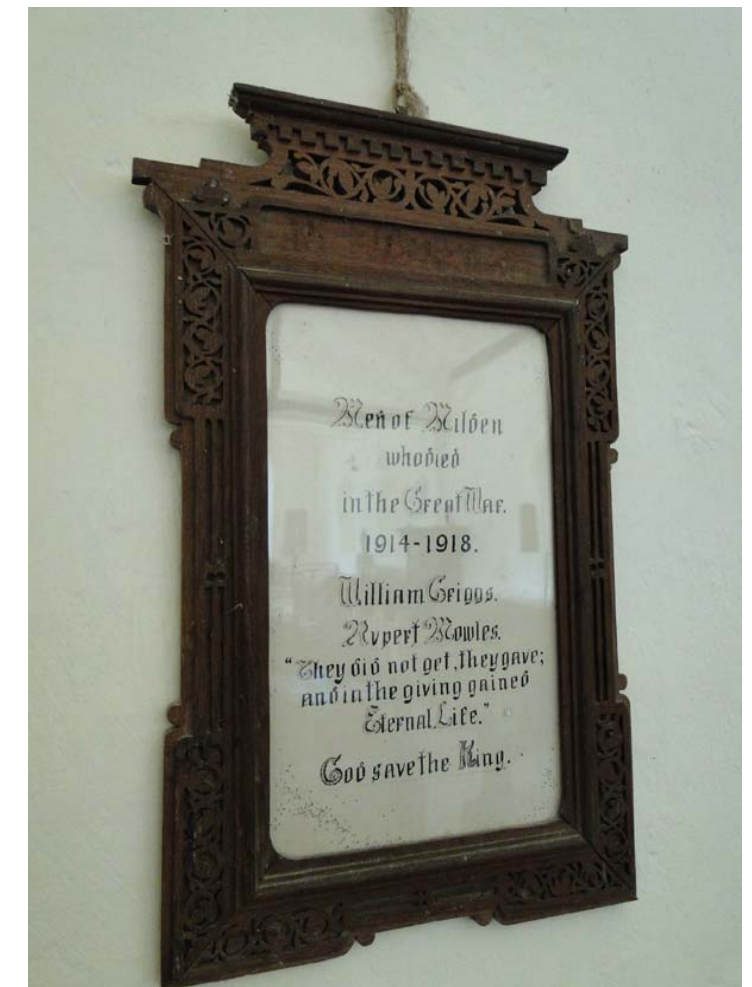 Men of Milden
who died
in the Great War.
1914-1918.
William Griggs.
Rupert Mowles.
"They did not get, they gave;
and in the giving gained
Eternal Life."
God save the King.